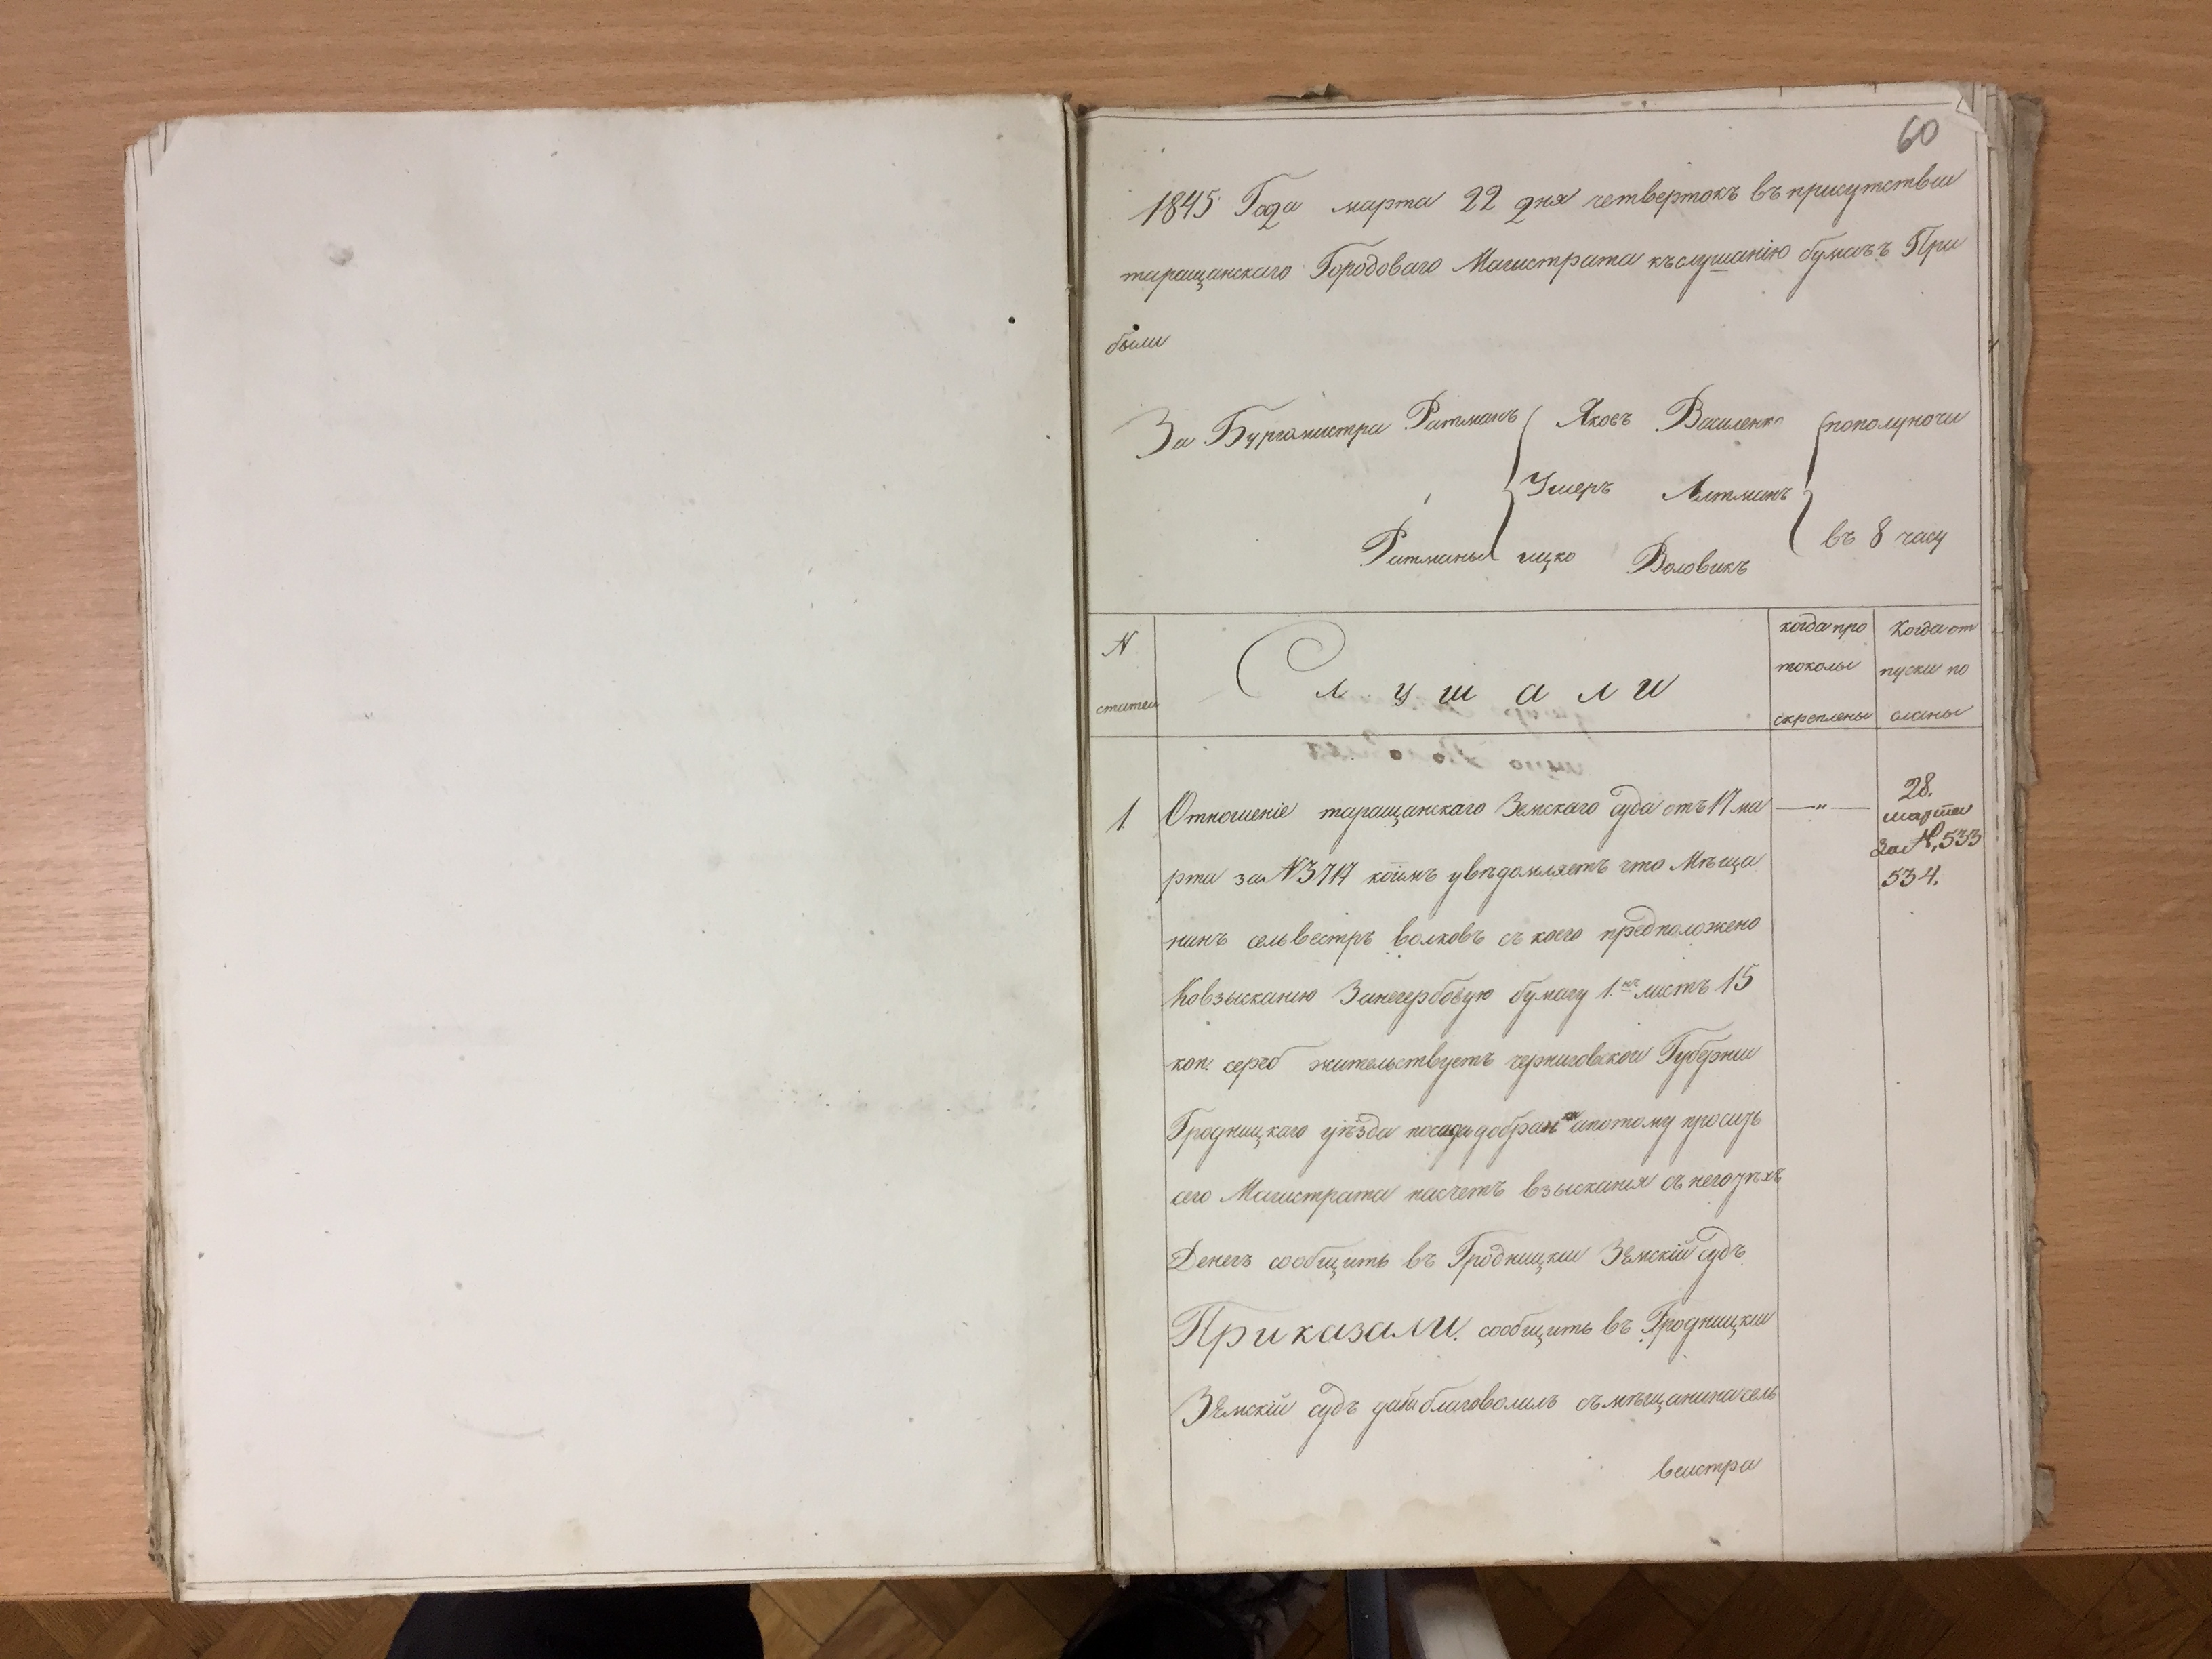 60
1845 Года марта 22 дня четвертокъ въ присутствии
таращанскаго Городоваго Магистрата къ слушанію бумагъ При
были
За Бургомистра Ратманъ Яковъ Василенко пополуночи
Ушеръ Алтманъ
въ 8 часу
Ратманы ицко Воловикъ
N статеи
Слушали
когда про
токолы
скреплены
Когда от
пуски по
сланы
1. Отношеніе таращанскаго Земскаго суда отъ 17 ма
рта за N 3717 коимъ увѣдомляетъ что Мѣща
нинъ сельвестръ волковъ съ коего предположено
Ковзысканию Занегербовую бумагу 1. листъ 15
коп. сереб жительствуетъ черниговскои Губернии
Гродницкаго уѣзда посада добрян апотому проситъ
сего Магистрата насчетъ взыскания съ него
Денегъ сообщить въ Гродницкии Земскій судъ.
Приказали. сообщить въ Гродницкии
Земскій судъ дабы благоволилъ съ мѣщанина сель
вистра
—"—
28.
марта
за №, 533
534.